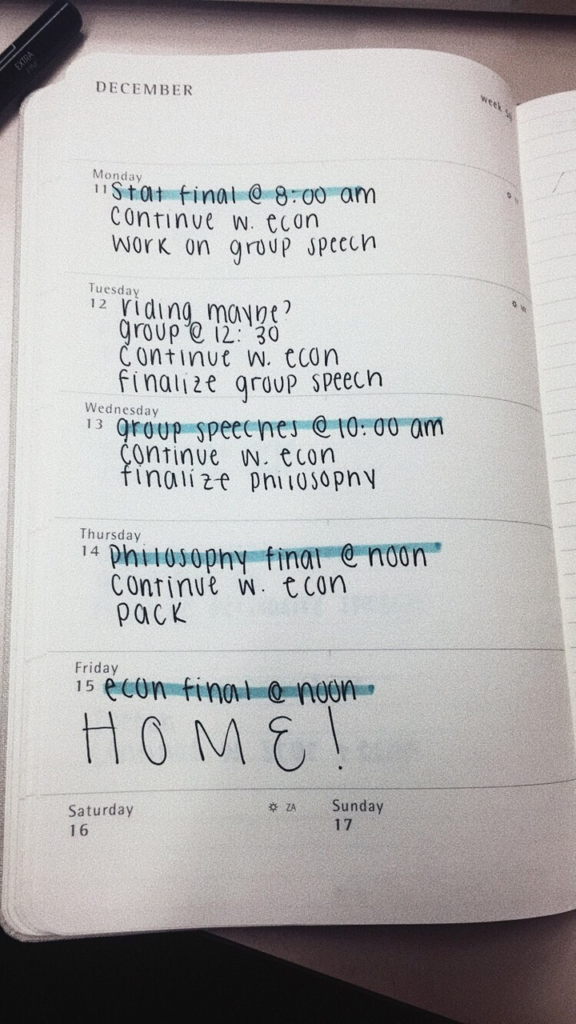 EXTRA
DECEMBER
week 50
Monday
11 Stat final @ 8:00 am
continue w. econ
work on group speech
Tuesday
12 riding maybe?
group @ 12:30
continue w. econ
finalize group speech
Wednesday
13 group speeches @ 10:00 am
continue w. econ
finalize philosophy
Thursday
14 philosophy final @ noon
continue w. econ
pack
Friday
15 econ final @ noon
HOME!
Saturday ZA Sunday
16 17